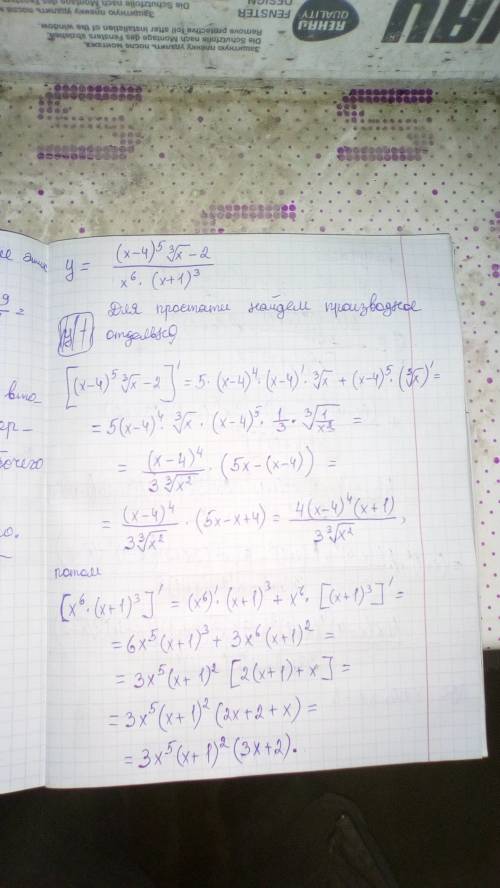 y = \frac{(x-4)^5 \sqrt[3]{x} - 2}{x^6 \cdot (x+1)^3}
Для простати найдем производное
отдельно
[(x-4)^5 \sqrt[3]{x} - 2]' = 5 \cdot (x-4)^4 \cdot (x-4)' \cdot \sqrt[3]{x} + (x-4)^5 \cdot (\sqrt[3]{x})' =
= 5(x-4)^4 \cdot \sqrt[3]{x} \cdot (x-4)^5 \cdot \frac{1}{3} \cdot \sqrt[3]{\frac{1}{x^2}} =
= \frac{(x-4)^4}{3\sqrt[3]{x^2}} \cdot (5x-(x-4)) =
= \frac{(x-4)^4}{3\sqrt[3]{x^2}} \cdot (5x-x+4) = \frac{4(x-4)^4(x+1)}{3\sqrt[3]{x^2}},
потом
[x^6 \cdot (x+1)^3]' = (x^6)' \cdot (x+1)^3 + x^6 \cdot [(x+1)^3]' =
= 6x^5(x+1)^3 + 3x^6(x+1)^2 =
= 3x^5(x+1)^2 [2(x+1)+x] =
= 3x^5(x+1)^2 (2x+2+x) =
= 3x^5(x+1)^2 (3x+2).
REHAU
QUALITY
FENSTER
DESIGN
Die Schutzfolie nach Montage des Fensters
Remove protective foil after installation of the window.
Защитную пленку удалить после
монтажа.